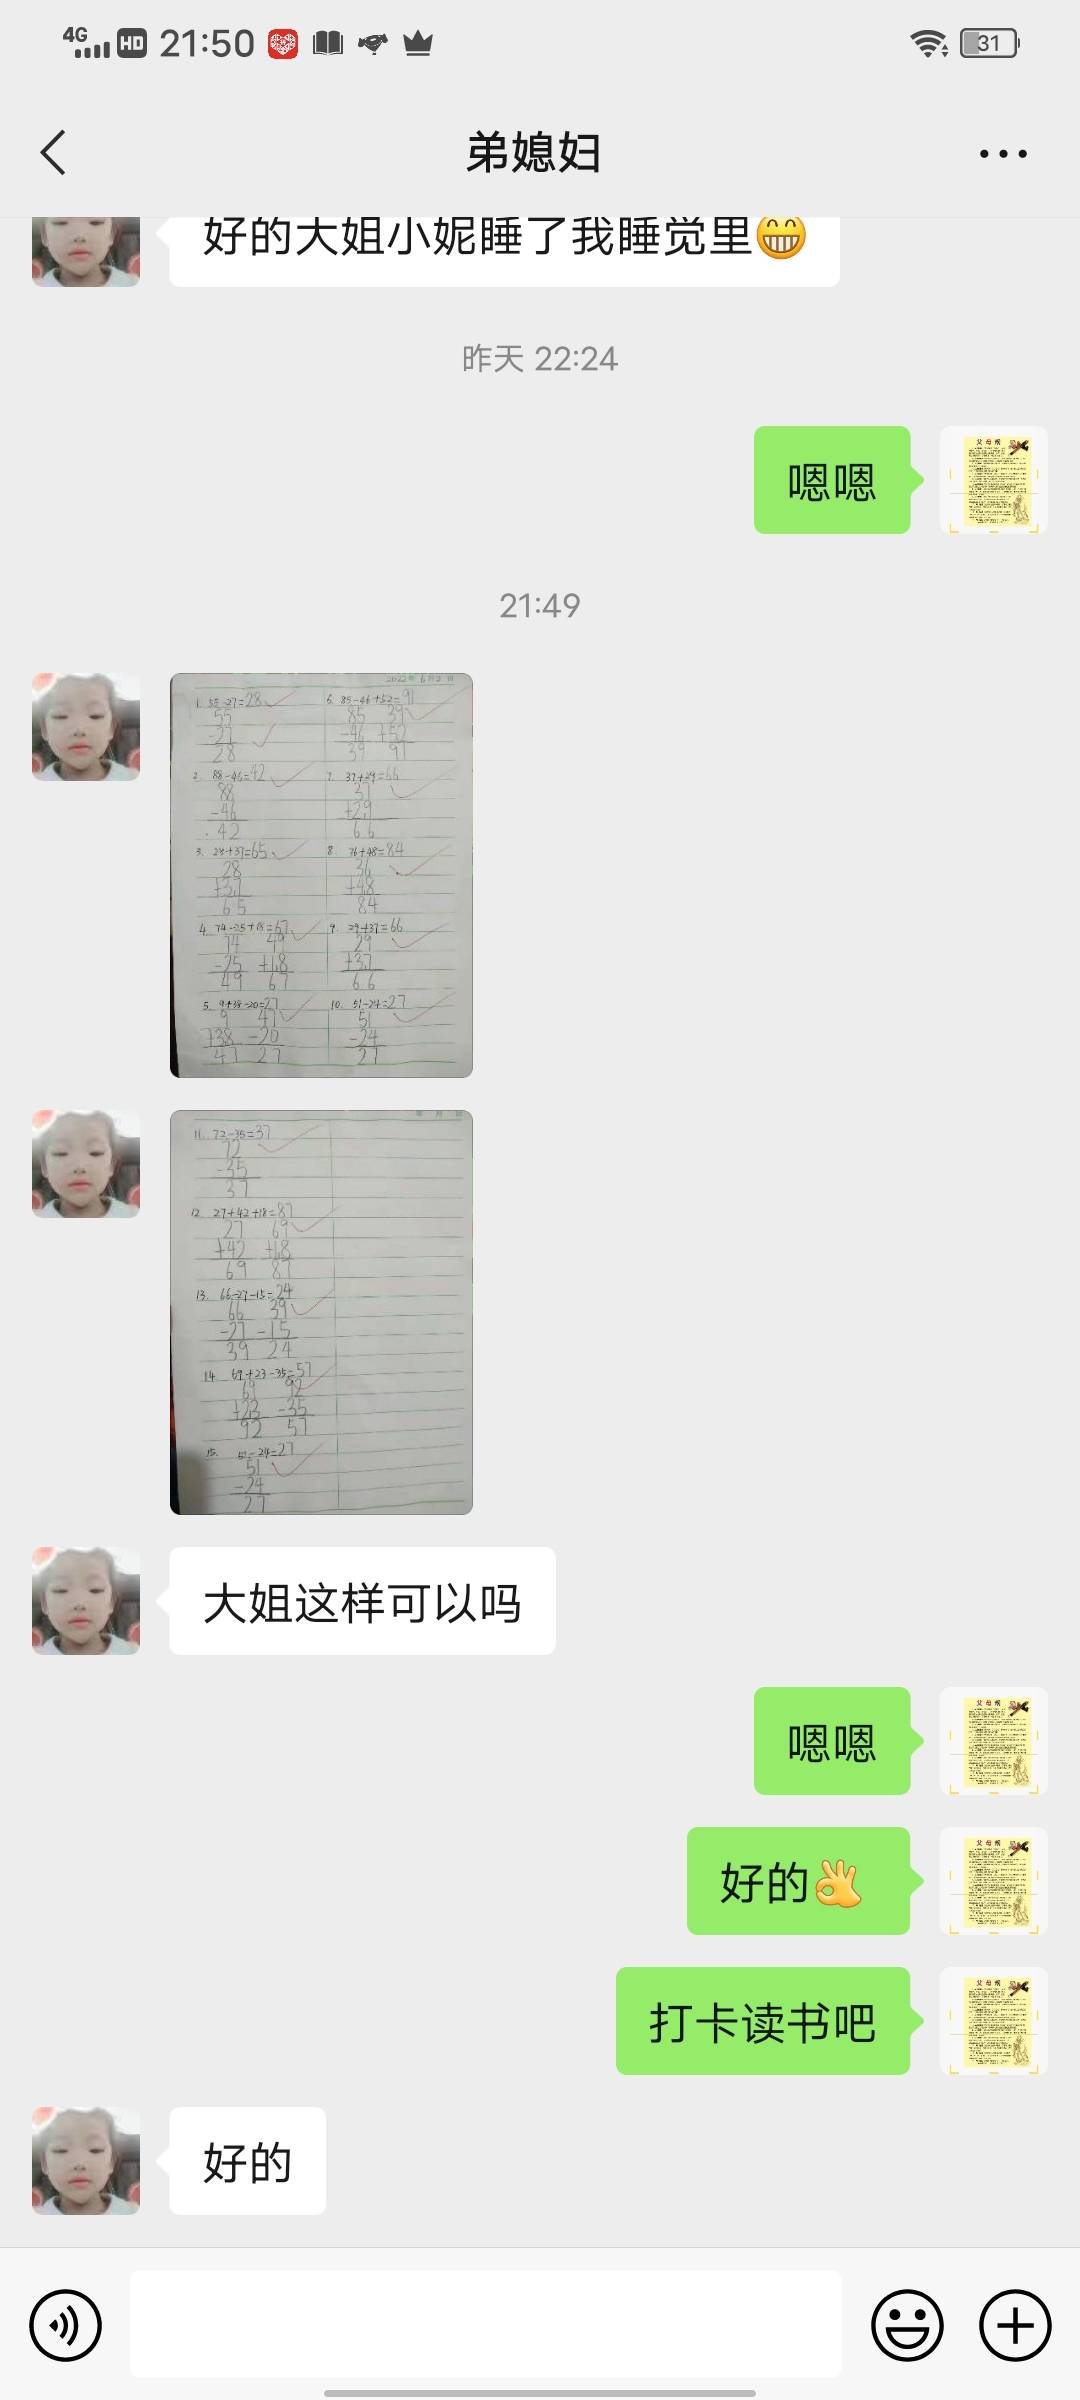 4G HD 21:50 31
弟媳妇
好的大姐小妮睡了我睡觉里😁
昨天 22:24
嗯嗯
21:49
2022年6月2日
1. 55-27=28
55
-27
28
6. 85-46+52=91
85 39
-46 +52
39 91
2. 88-46=42
88
-46
42
7. 37+29=66
37
+29
66
3. 28+37=65
28
+37
65
8. 36+48=84
36
+48
84
4. 74-25+18=67
74 49
-25 +18
49 67
9. 29+37=66
29
+37
66
5. 9+38-20=27
9 47
+38 -20
47 27
10. 51-24=27
51
-24
27
年 月 日
11. 72-35=37
72
-35
37
12. 27+42+18=87
27 69
+42 +18
69 87
13. 66-27-15=24
66 39
-27 -15
39 24
14. 69+23-35=57
69 92
+23 -35
92 57
15. 51-24=27
51
-24
27
大姐这样可以吗
嗯嗯
好的👌
打卡读书吧
好的
父母规